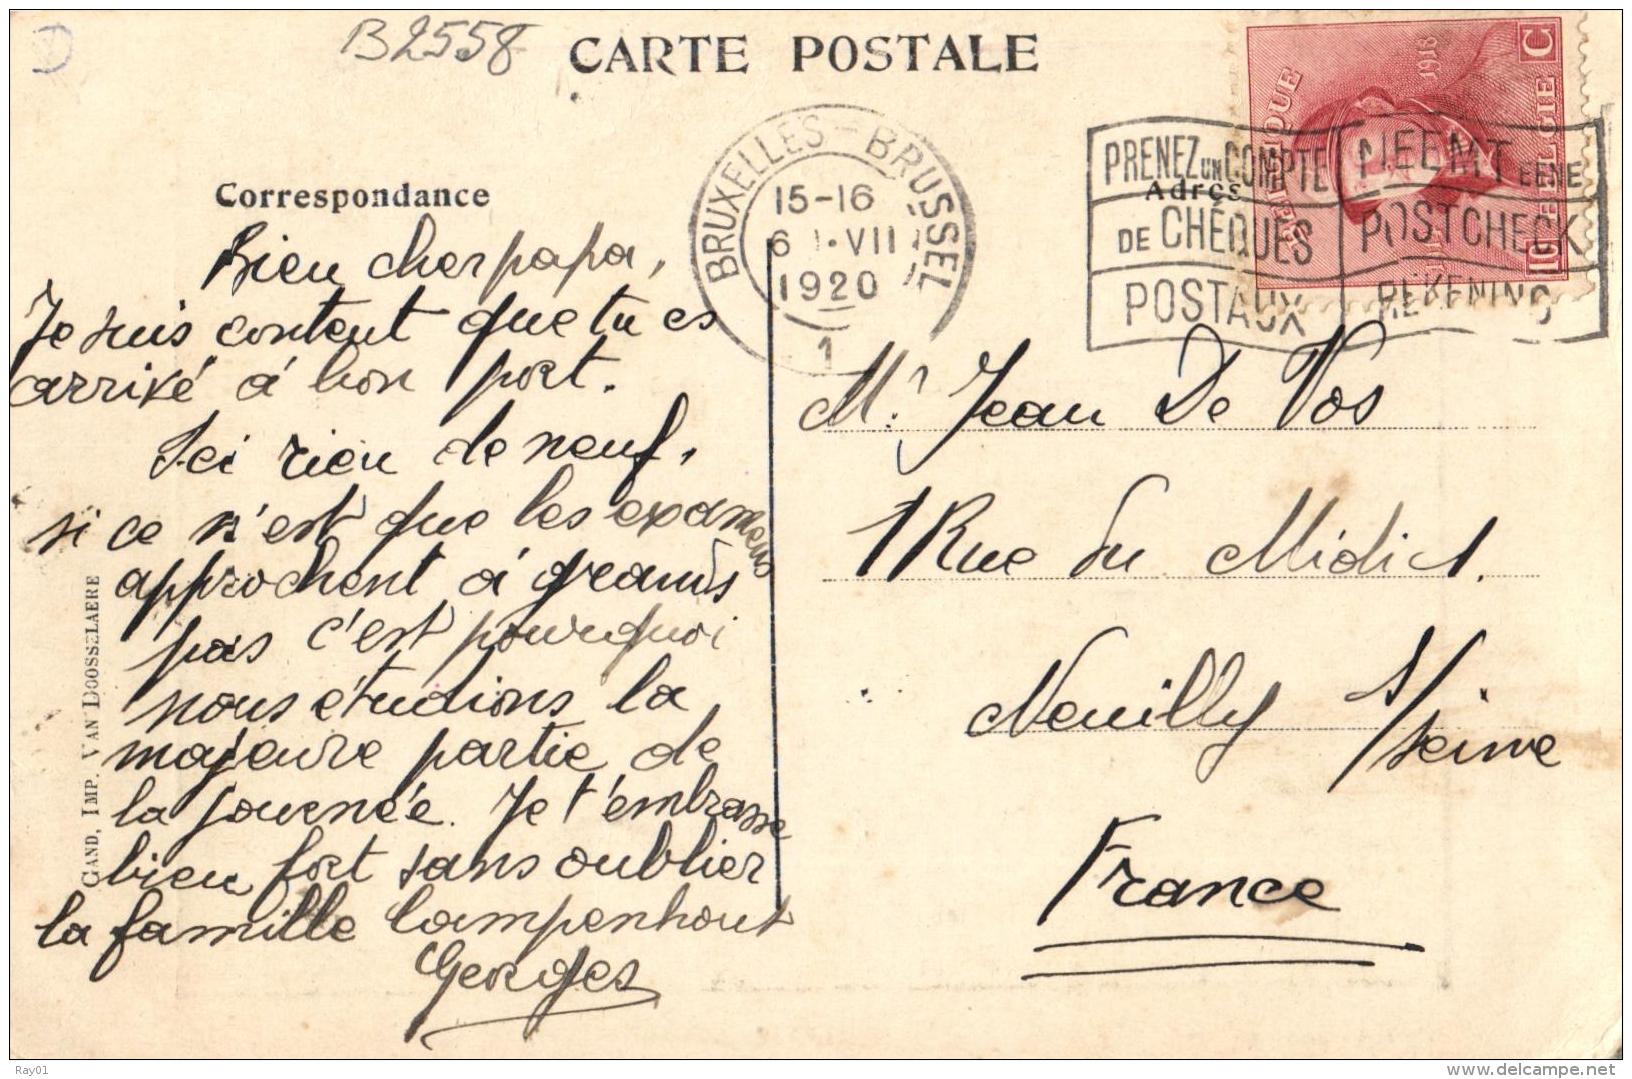 B2558
CARTE POSTALE
BRUXELLES - BRUSSEL
15-16
VII
1920
1
PRENEZ UN COMPTE
DE CHÉQUES
POSTAUX
NEEMT EENE
POSTCHECK
REKENING
BELGIQUE
1918
BELGIE
10 C
Correspondance
Adres
Bien cher papa,
Je suis content que tu es
arrivé à bon port.
Ici rien de neuf,
si ce n'est que les examens
approchent à grands
pas c'est pourquoi
nous étudions la
majeure partie de
la journée. Je t'embrasse
bien fort sans oublier
la famille Campenhout
Georges
Mr Jean De Vos
1 Rue du Midi 1.
Neuilly s/Seine
France
GAND, IMP. VAN DOOSSELAERE
Ray01
delcampe.net